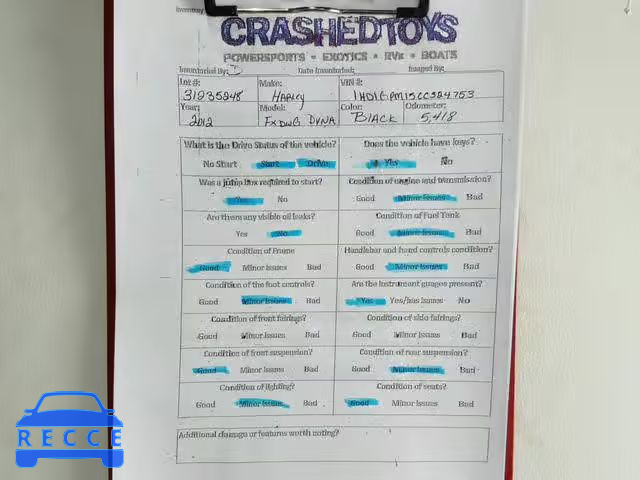 Inventory
CRASHEDTOYS
POWERSPORTS • EXOTICS • RVs • BOATS
Inventoried By: Date Inventoried: Imaged By:
Lot #: Make: VIN #:
31235248 HARLEY 1HD1GPM15CC324753
Year: Model: Color: Odometer:
2012 FXDWG DYNA BLACK 5,418
What is the Drive Status of the vehicle? Does the vehicle have keys?
No Start Start Drive Yes No
Was a jump box required to start? Condition of engine and transmission?
Yes No Good Minor Issues Bad
Are there any visible oil leaks? Condition of Fuel Tank
Yes No Good Minor Issues Bad
Condition of Frame Handlebar and hand controls condition?
Good Minor Issues Bad Good Minor Issues Bad
Condition of the foot controls? Are the instrument gauges present?
Good Minor Issues Bad Yes Yes/has issues No
Condition of front fairings? Condition of side fairings?
Good Minor Issues Bad Good Minor Issues Bad
Condition of front suspension? Condition of rear suspension?
Good Minor Issues Bad Good Minor Issues Bad
Condition of lighting? Condition of seats?
Good Minor Issues Bad Good Minor Issues Bad
Additional damage or features worth noting?
RECCE